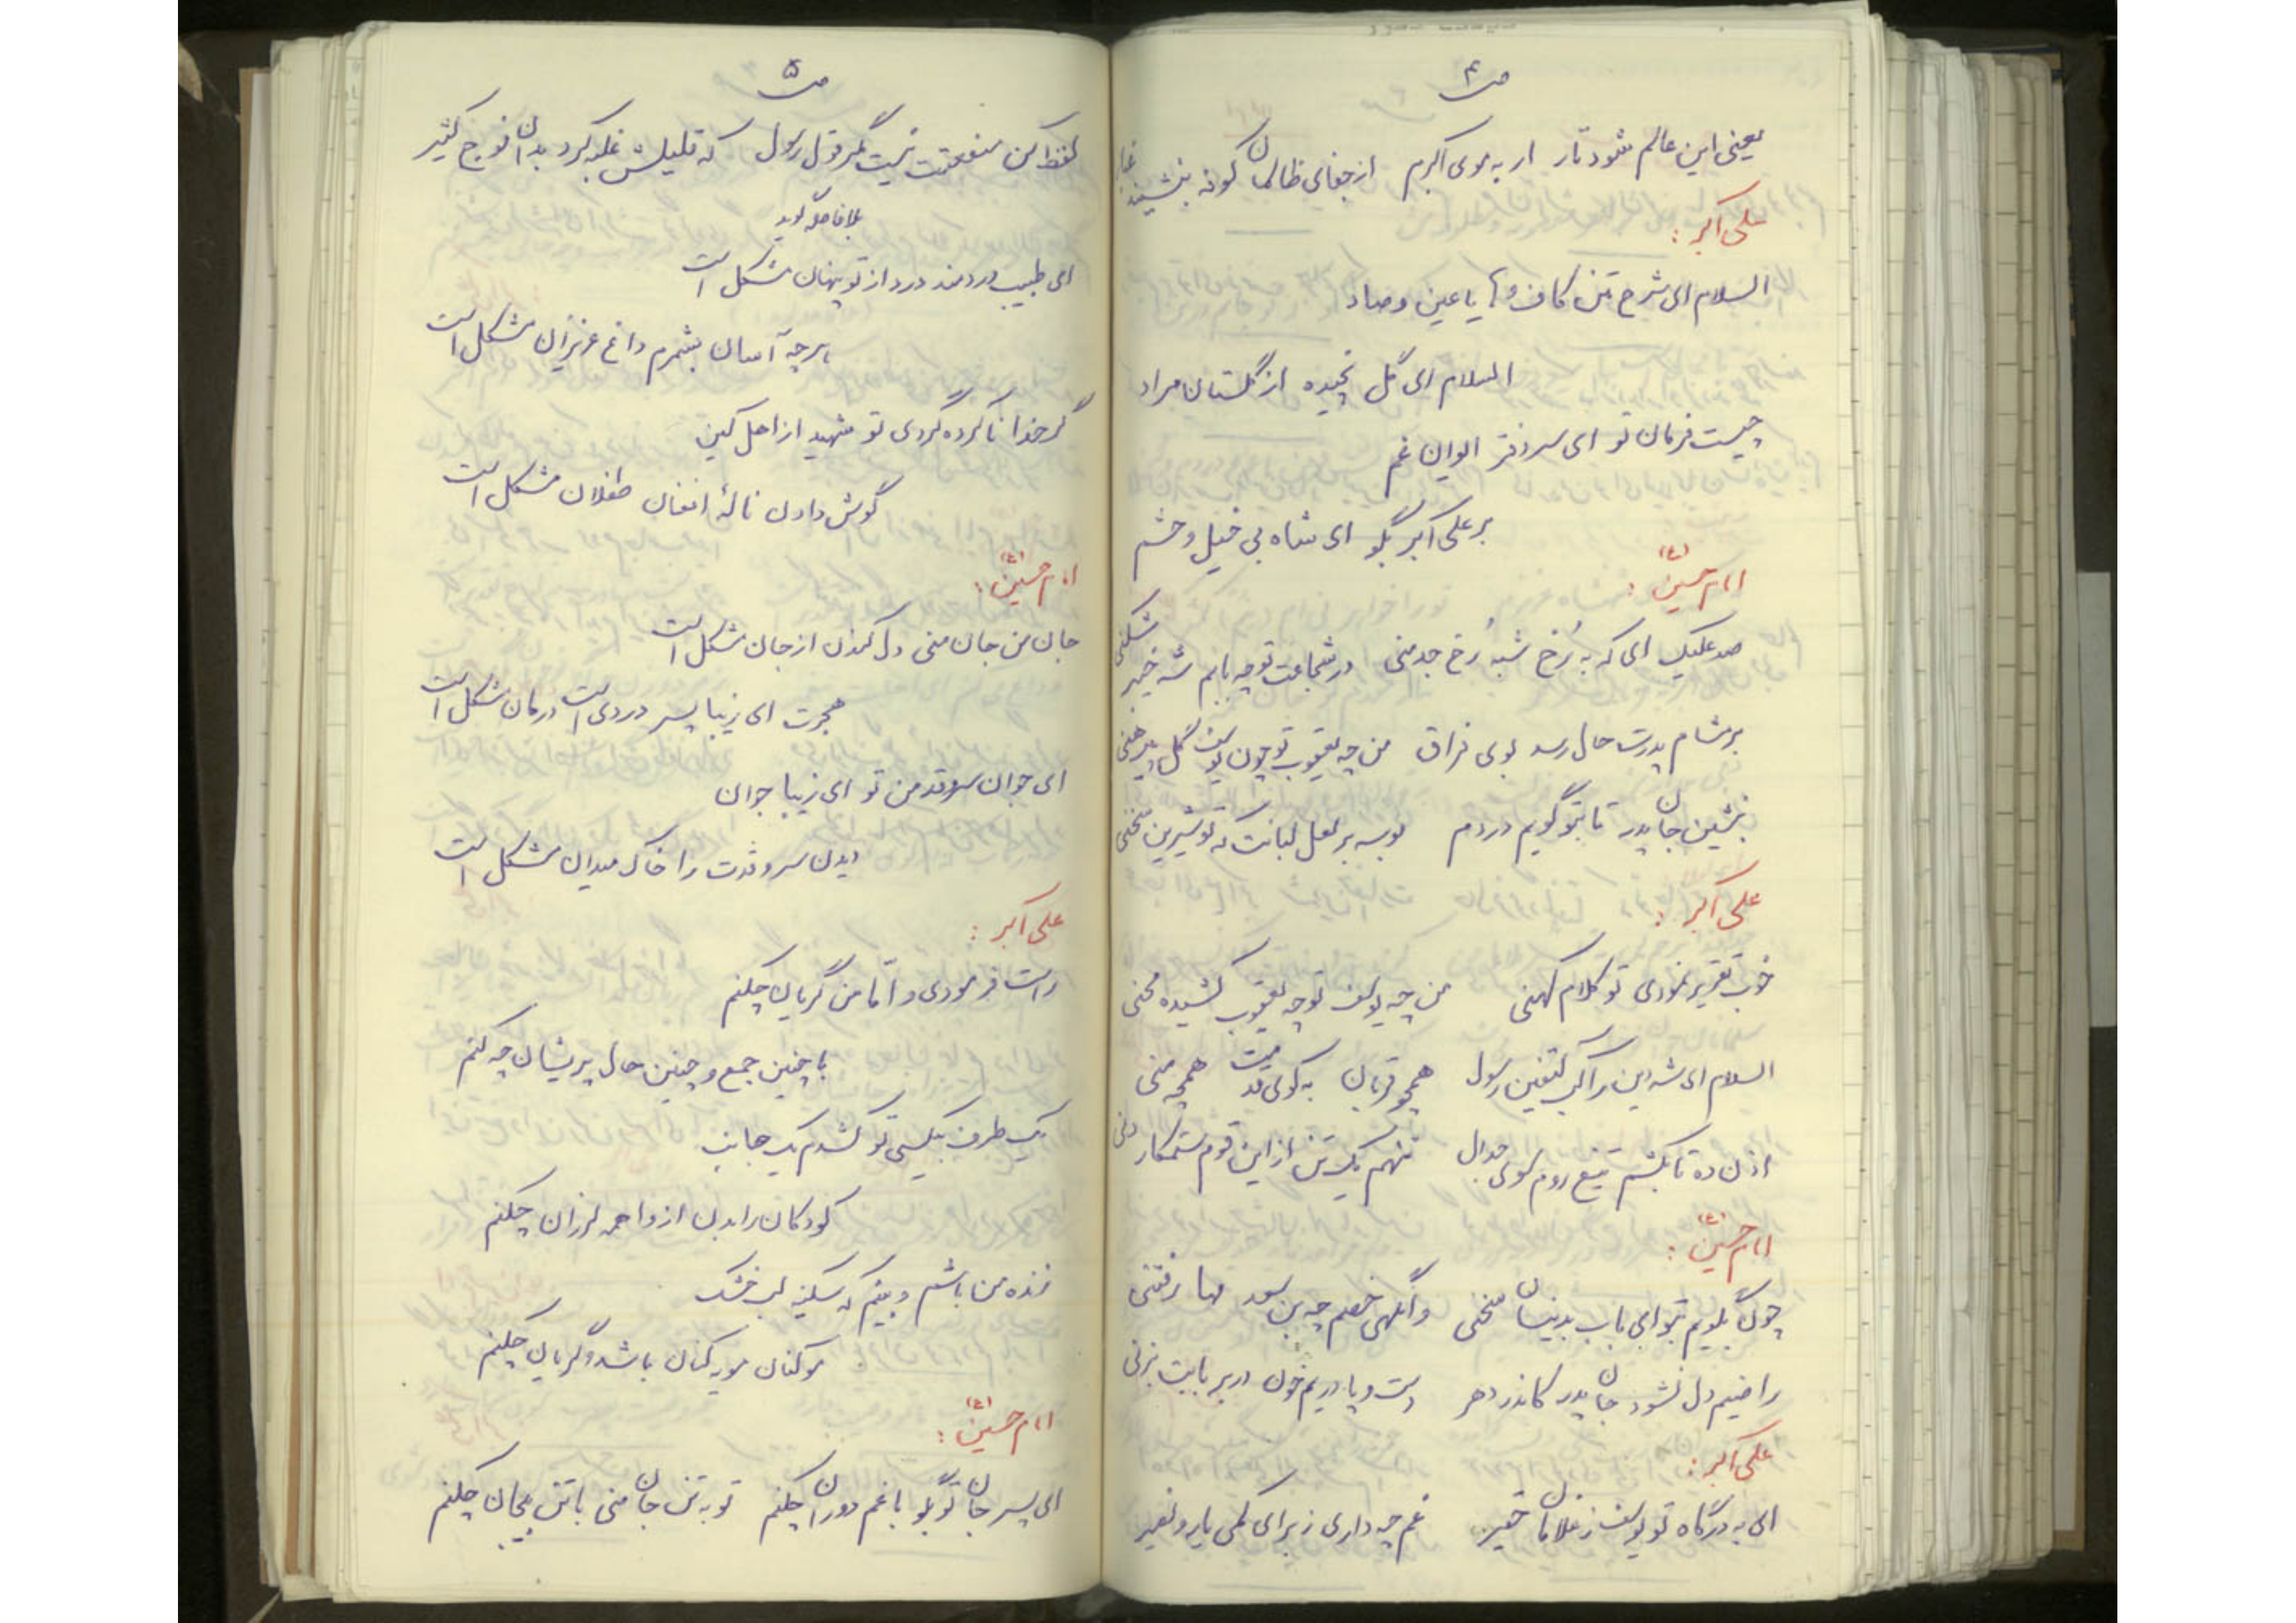 ص ۴
یعنی این عالم شود تار ار به موی اکبرم از جفای ظالمان کوفه بنشیند غبار
علی اکبر :
السلام ای شرح متن کاف و ها یا عین و صاد
السلام ای گل نچیده از گلستان مراد
چیست فرمان تو ای سر دفتر ایوان غم
بر علی اکبر بگو ای شاه بی خیل و حشم
امام حسین (ع) :
صد علیک ای که به رُخ شبه رُخ جد منی در شجاعت تو چه بابم شه خیبر شکنی
بر مشام پدرت حال رسد بوی فراق من چه یعقوب تو چون یوسف گل پیرهنی
بنشین جان پدر تا بتو گویم دردم بوسه بر لعل لبانت که تو شیرین سخنی
علی اکبر :
خوب تقریر نمودی تو کلام کهنی من چه یوسف تو چه یعقوب کشیده محنی
السلام ای شه دین راکب کتفین رسول همچو قربان به کوی تو همچه منی
اذن ده تا بکشم تیغ روم سوی جدال ننهم یک تن از این قوم ستمکار دنی
امام حسین (ع) :
چون بگویم بتو ای باب بدینسان سخنی وانگهی خصم چه بن سعد مها رفتنی
راضیم دل نشود جان پدر کاندر دهر دست و پا در یم خون در بر بابت بزنی
علی اکبر :
ای به درگاه تو یوسف ز غلامان حقیر غم چه داری ز برای کمی یار و نصیر
ص ۵
لفظ کم من منقصت نیست مگر قول رسول که قلیلش غلبه کرد بدان فوج کثیر
بلافاصله گوید
ای طبیب دردمند درد از تو پنهان مشکل است
هر چه آسان بشمرم داغ عزیزان مشکل است
گر خدا ناکرده گردی تو شهید از اهل کین
گوش دادن نالهٔ افغان طفلان مشکل است
امام حسین (ع) :
جان من جان منی دل کندن از جان مشکل است
هجرت ای زیبا پسر دردی است درمان مشکل است
ای جوان سروقد من تو ای زیبا جوان
دیدن سرو قدت را خاک میدان مشکل است
علی اکبر :
راست فرمودی و امّا من گریان چکنم
با چنین جمع و چنین حال پریشان چه کنم
یک طرف بیکسی تو کشدم یک جانب
کودکان را بدن از واهمه لرزان چکنم
زنده من باشم و بینم که سکینه لب خشک
مو کنان مویه کنان باشد و گریان چکنم
امام حسین (ع) :
ای پسر جان تو بگو با غم دوران چکنم تو به تن جان منی با تن بیجان چکنم